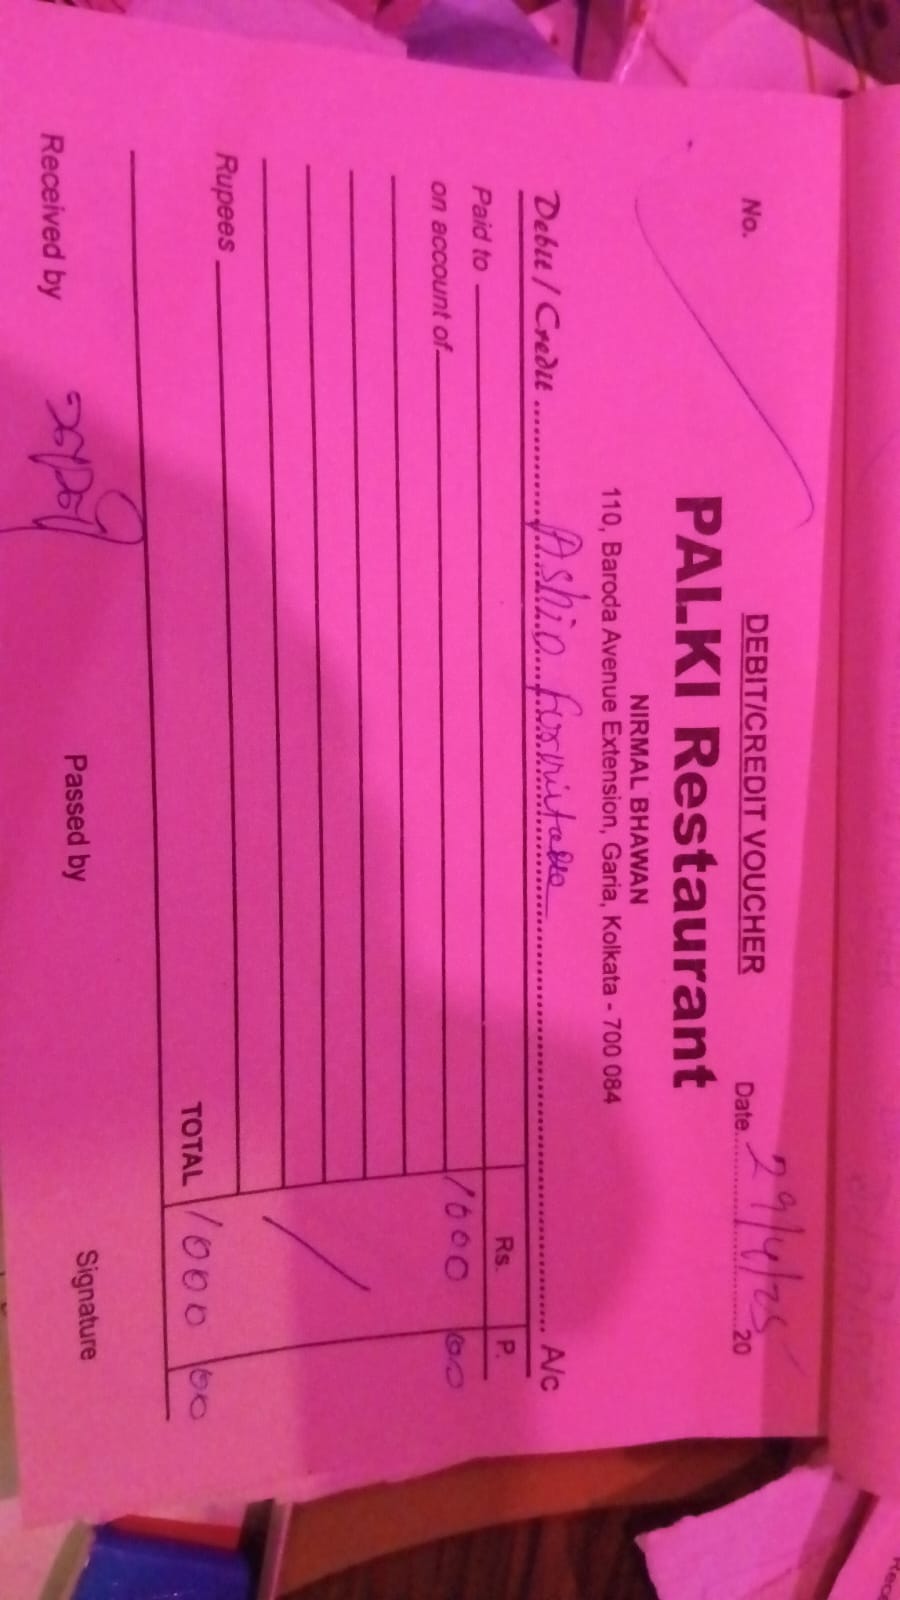 DEBIT/CREDIT VOUCHER
No.
Date 29/4/25 20
PALKI Restaurant
NIRMAL BHAWAN
110, Baroda Avenue Extension, Garia, Kolkata - 700 084
Debit / Credit Ashio A/c
Rs. P.
Paid to
on account of 1000 00
Rupees
TOTAL 1000 00
Received by Passed by Signature